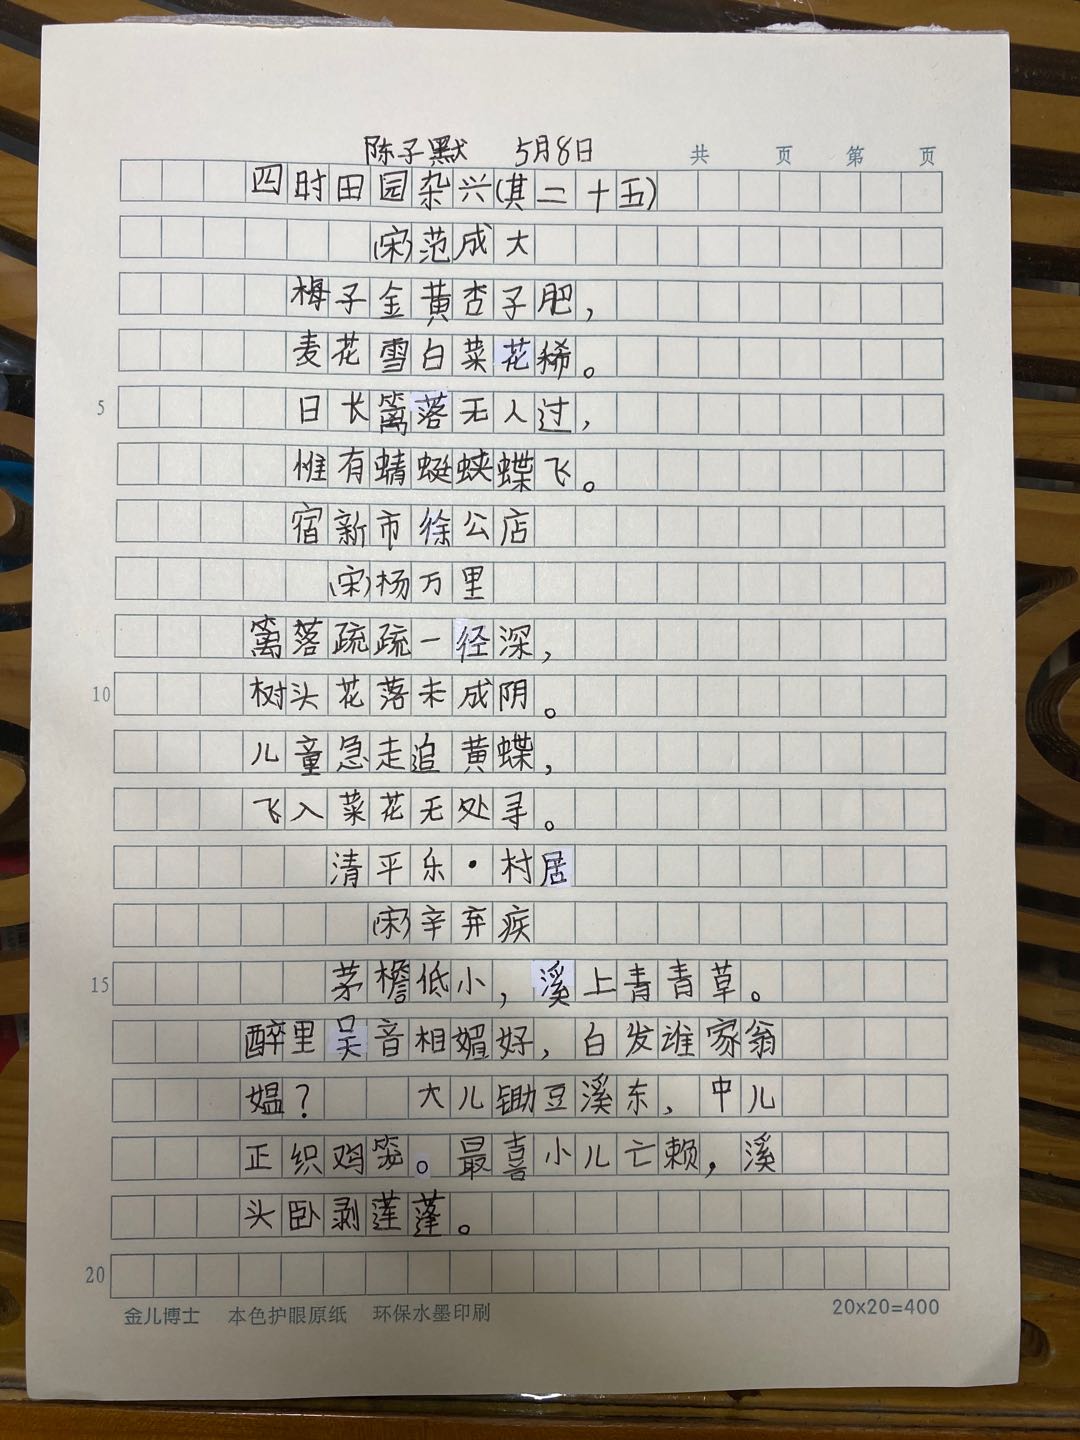 陈子默 5月8日
共 页 第 页
四时田园杂兴(其二十五)
(宋)范成大
梅子金黄杏子肥，
麦花雪白菜花稀。
5 日长篱落无人过，
惟有蜻蜓蛱蝶飞。
宿新市徐公店
(宋)杨万里
篱落疏疏一径深，
10 树头花落未成阴。
儿童急走追黄蝶，
飞入菜花无处寻。
清平乐·村居
(宋)辛弃疾
15 茅檐低小，溪上青青草。
醉里吴音相媚好，白发谁家翁
媪？ 大儿锄豆溪东，中儿
正织鸡笼。最喜小儿亡赖，溪
头卧剥莲蓬。
20
金儿博士 本色护眼原纸 环保水墨印刷 20x20=400